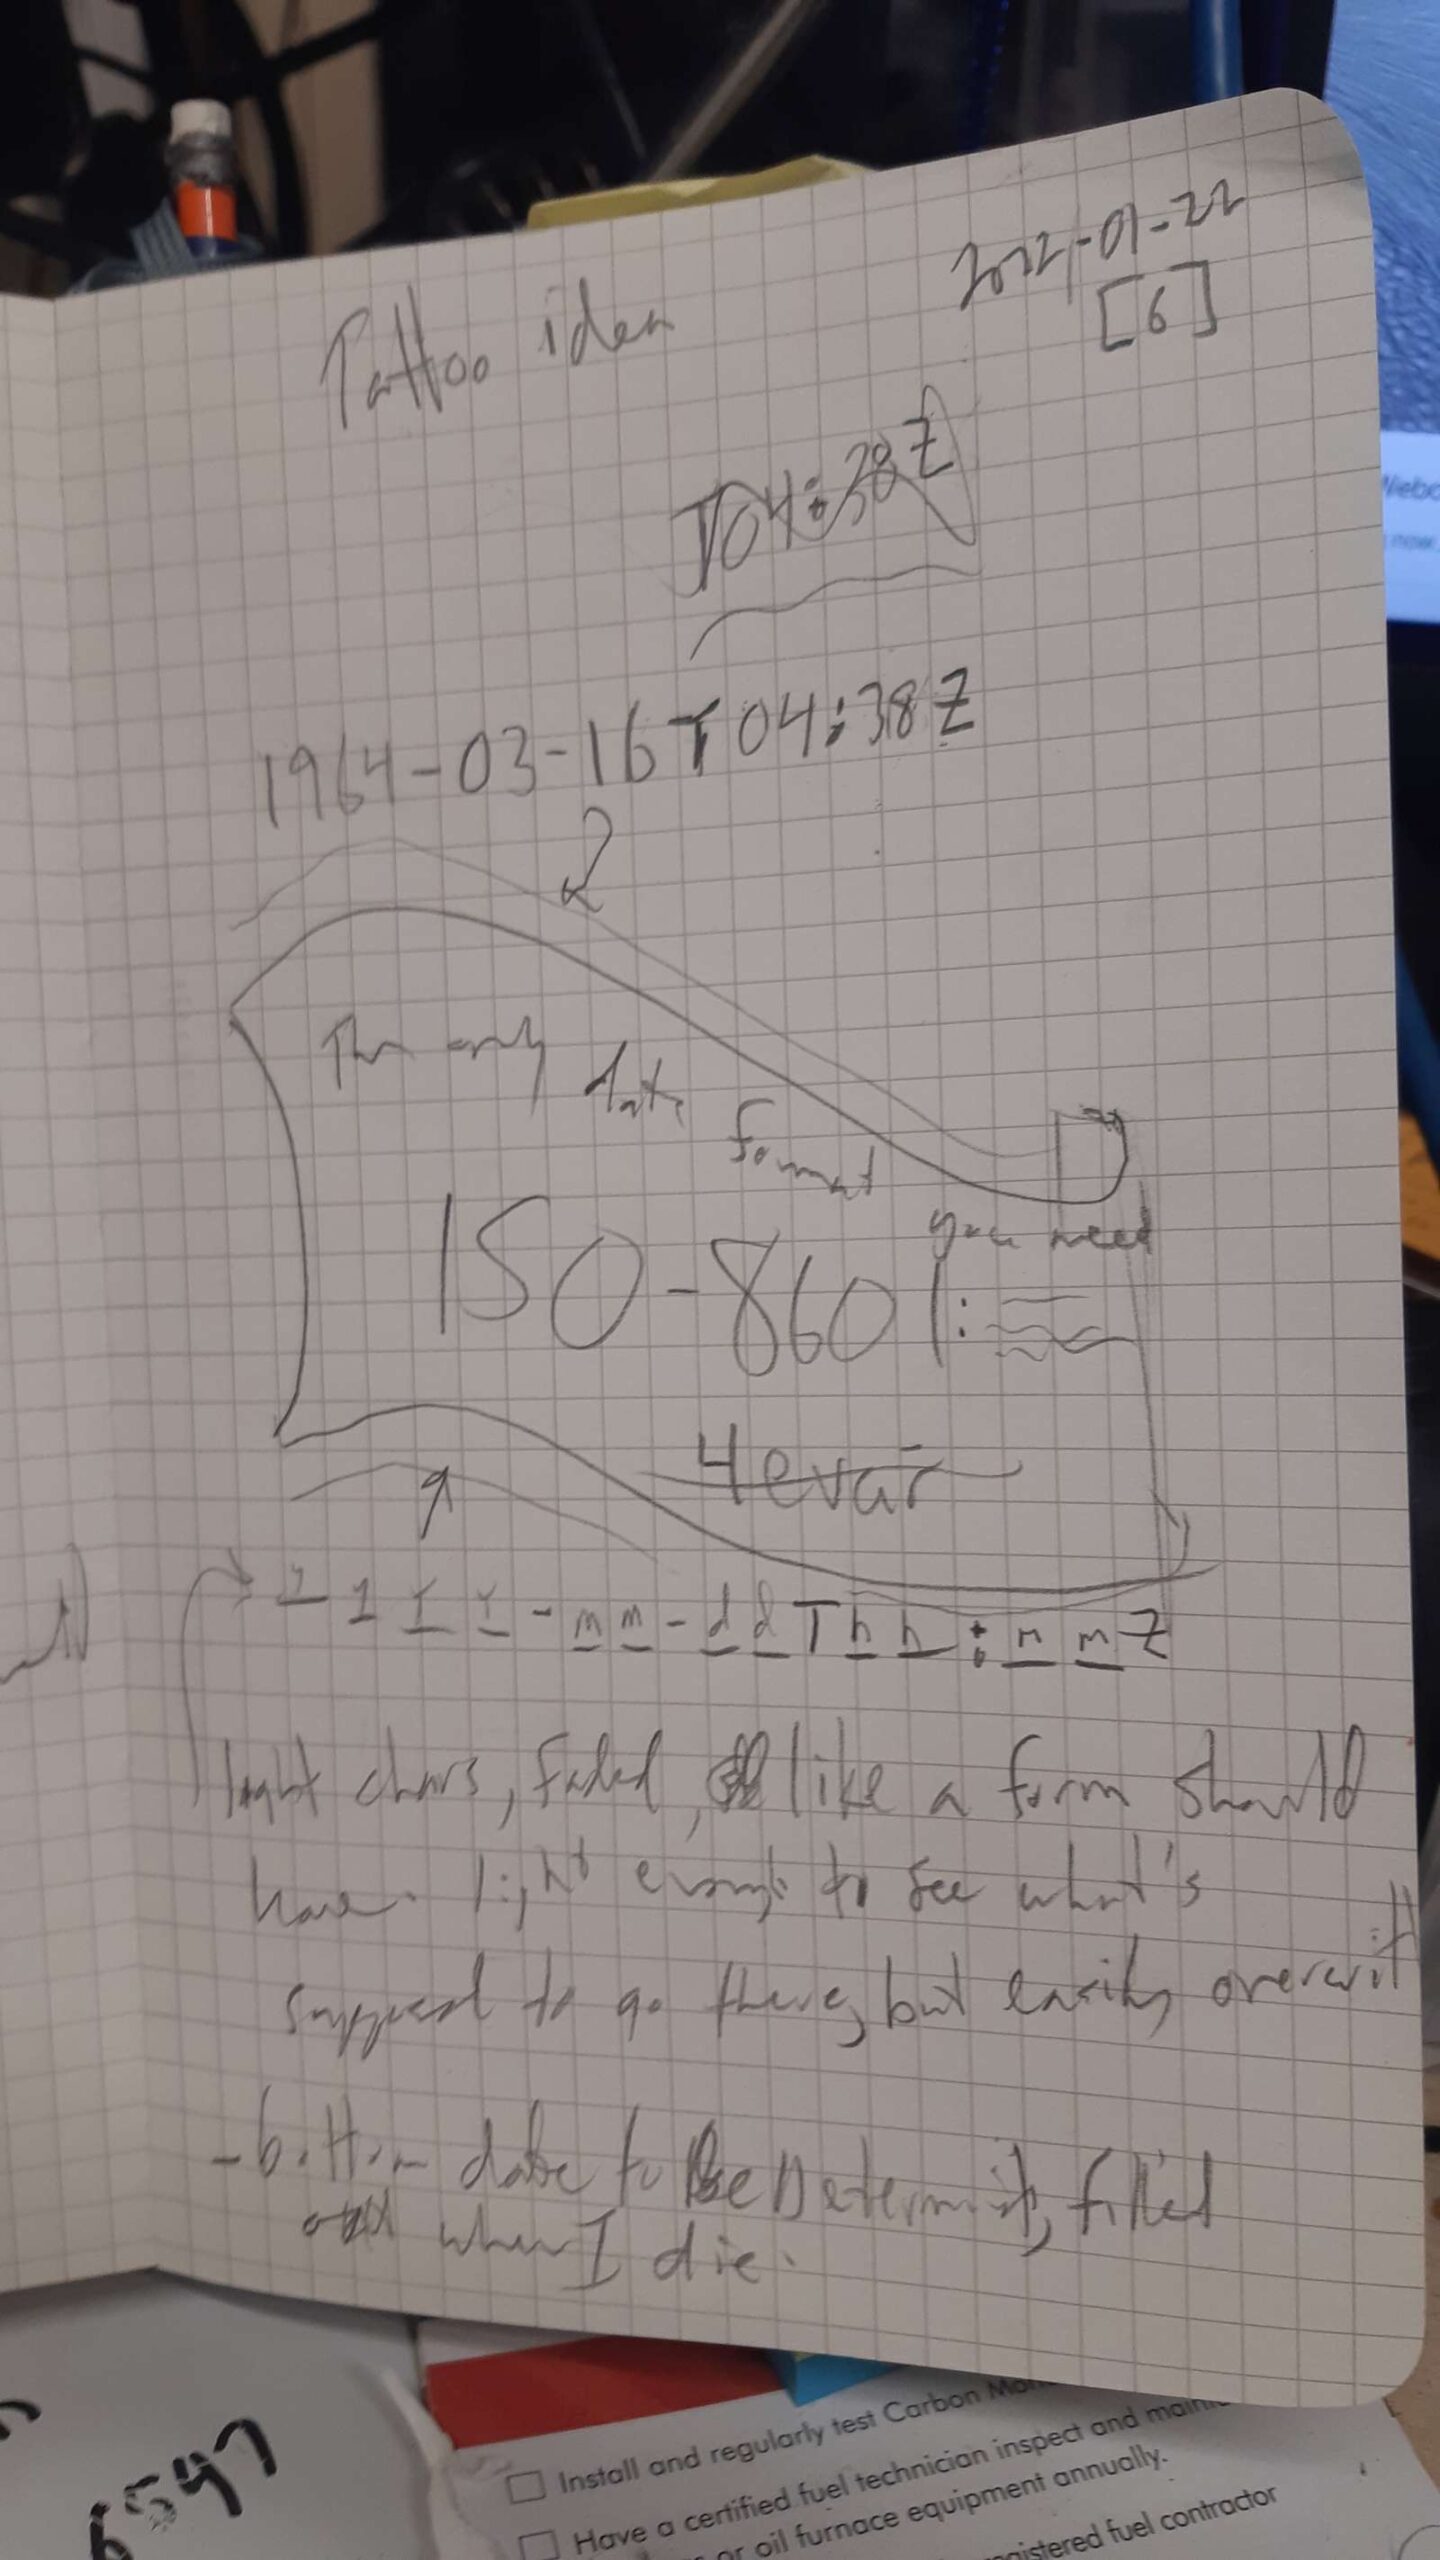 Tattoo idea
2022-01-22
[6]
T04:38Z
1964-03-16T04:38Z
The only date format
you need
ISO-8601:
4evar
Y Y Y Y - m m - d d T h h : m m Z
light chars, faded, like a form should
have. light enough to see what's
supposed to go there, but easily overwrit
- bottom date to be Determined, filled
when I die.
Install and regularly test Carbon
Have a certified fuel technician inspect and
or oil furnace equipment annually.
fuel contractor
6547